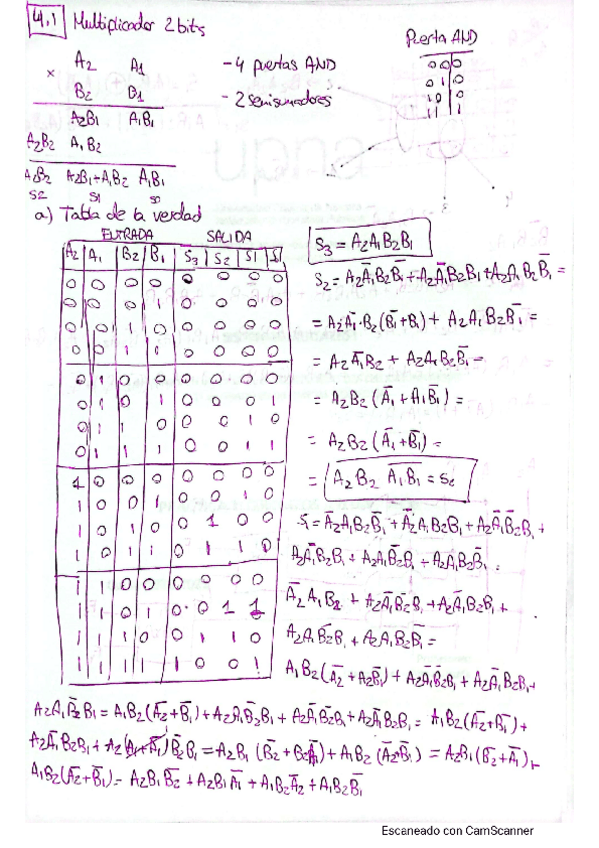 4.1 Multiplicador 2 bits
Puerta AND
0 0 0
0 1 0
1 0 0
1 1 1
A2 A1
x B2 B1
A2B1 A1B1
A2B2 A1B2
A2B2 A2B1+A1B2 A1B1
S2 S1 S0
- 4 puertas AND
- 2 semisumadores
a) Tabla de la verdad
ENTRADA SALIDA
A2 A1 B2 B1 S3 S2 S1 S
0 0 0 0 0 0 0 0
0 0 0 1 0 0 0 0
0 0 1 0 0 0 0 0
0 0 1 1 0 0 0 0
0 1 0 0 0 0 0 0
0 1 0 1 0 0 0 1
0 1 1 0 0 0 1 0
0 1 1 1 0 0 1 1
1 0 0 0 0 0 0 0
1 0 0 1 0 0 1 0
1 0 1 0 0 1 0 0
1 0 1 1 0 1 1 0
1 1 0 0 0 0 0 0
1 1 0 1 0 0 1 1
1 1 1 0 0 1 1 0
1 1 1 1 1 0 0 1
S3 = A2A1B2B1
S2 = A2A̅1B2B̅1 + A2A̅1B2B1 + A2A1B2B̅1 =
= A2A̅1·B2(B̅1+B1) + A2A1B2B̅1 =
= A2A̅1B2 + A2A1B2B̅1 =
= A2B2(A̅1 + A1B̅1) =
= A2B2(A̅1+B̅1) =
= A2B2 A̅1B̅1 = S2
S1 = A̅2A1B2B̅1 + A̅2A1B2B1 + A2A̅1B̅2B1 +
A2A̅1B2B1 + A2A1B̅2B1 + A2A1B2B̅1 =
A̅2A1B2 + A2A̅1B̅2B1 + A2A̅1B2B1 +
A2A1B̅2B1 + A2A1B2B̅1 =
A1B2(A̅2 + A2B̅1) + A2A̅1B̅2B1 + A2A̅1B2B1 +
A2A1B̅2B1 = A1B2(A̅2+B̅1) + A2A1B̅2B1 + A2A̅1B̅2B1 + A2A̅1B2B1 = A1B2(A̅2+B̅1) +
A2A̅1B2B1 + A2(A1+A̅1)B̅2B1 = A2B1(B̅2+B2A̅1) + A1B2(A̅2+B̅1) = A2B1(B̅2+A̅1) +
A1B2(A̅2+B̅1) = A2B1B̅2 + A2B1A̅1 + A1B2A̅2 + A1B2B̅1
Escaneado con CamScanner